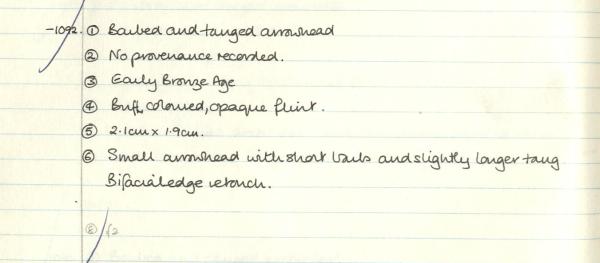 -1092. ① Barbed and-tanged arrowhead
② No provenance recorded.
③ Early Bronze Age
④ Buff, coloured, opaque flint.
⑤ 2.1cm x 1.9cm.
⑥ Small arrowhead with short barbs and slightly longer tang
Bifacial edge retouch.
⑧ f2